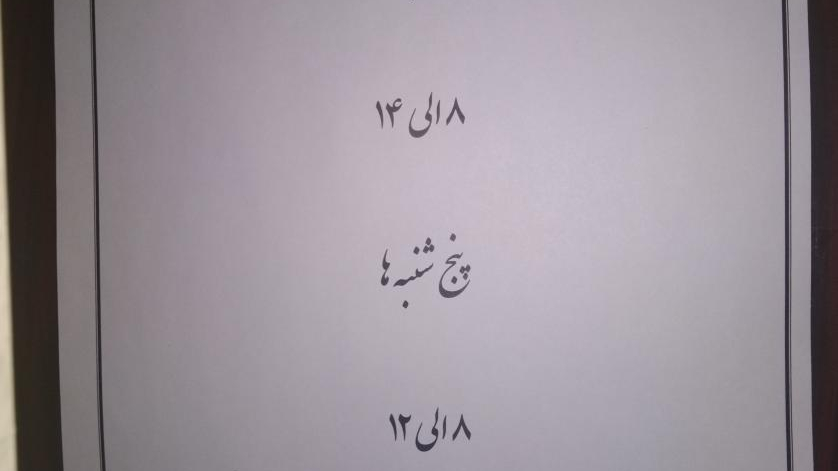 ۸ الی ۱۴
پنج شنبه ها
۸ الی ۱۲